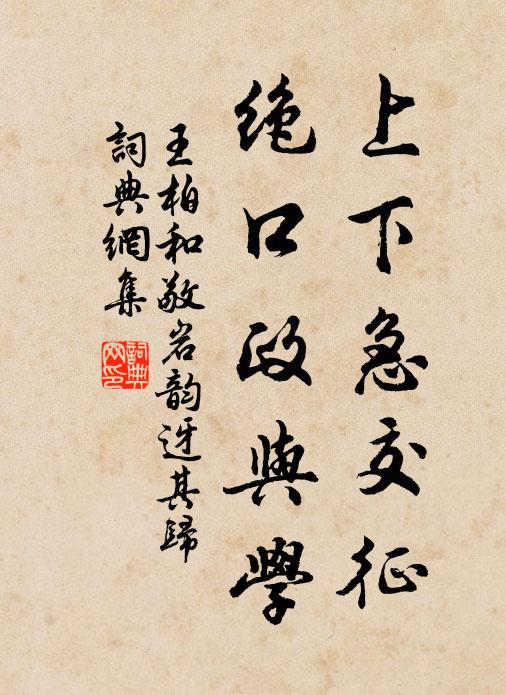 上下急交征
絶口政與學
王柏和敬岩韵迓其歸
詞典網集
詞典網印